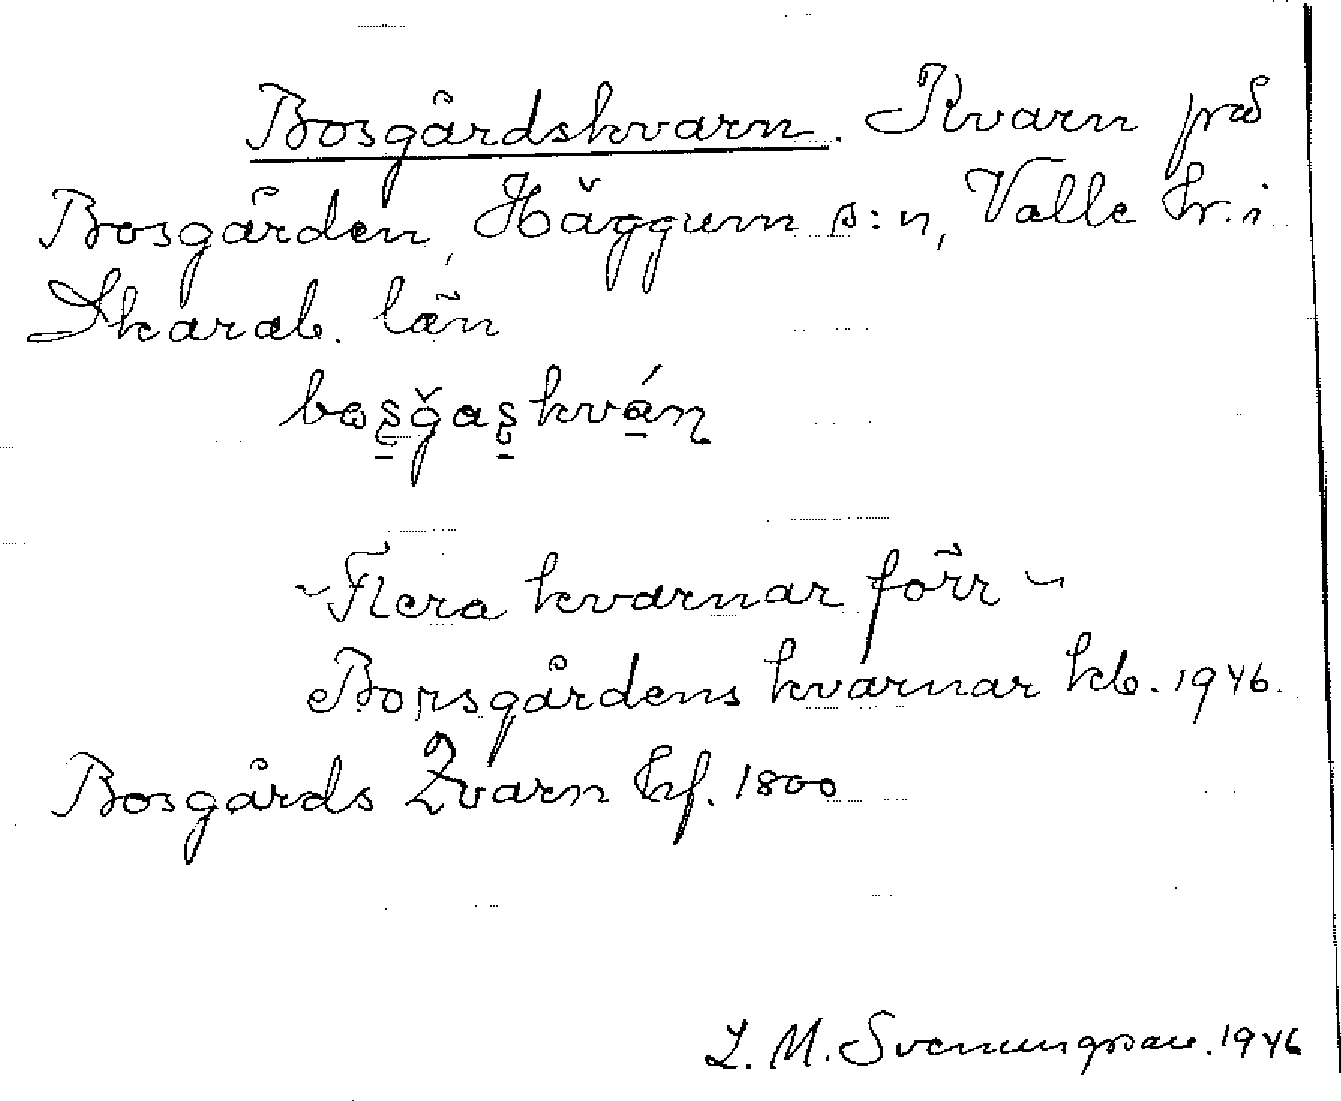 Bosgårdskvarn. Kvarn på
Bosgården, Häggum s:n, Valle hr. i
Skarab. län
bosgaskván
Flera kvarnar förr
Borsgårdens kvarnar kb. 1946.
Bosgårds Qvarn hf. 1800
L. M. Svenungsson. 1946